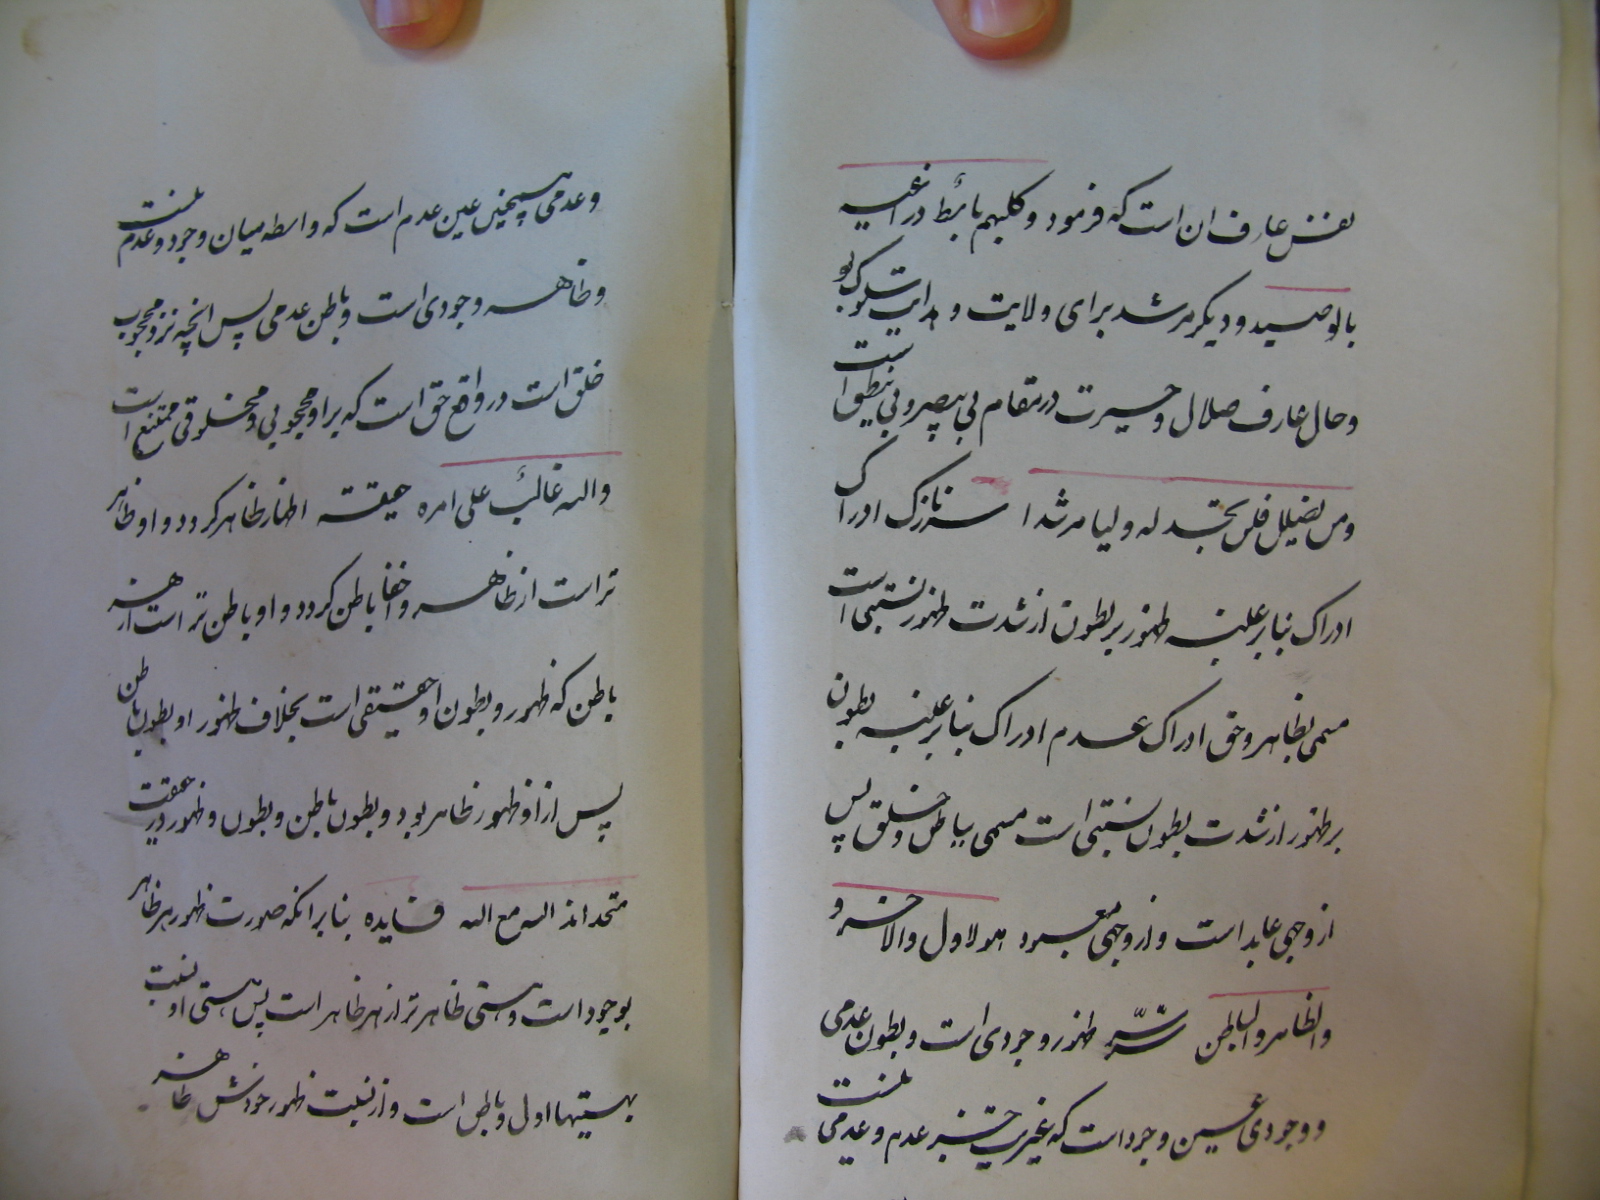 نفس عارف ان است که فرمود و کلبهم باسط ذراعیه
بالوصید و دیگر مرشد برای ولایت و هدایت سلوک بو
و حال عارف ضلال و حیرت در مقام بی یبصر و بی ینطق است
و من یضلل فلن تجد له ولیا مرشدا سر نازک ادراک
ادراک بنابر غلبه ظهور بر بطون از شدت ظهور نسبتی است
مسمی بظاهر و حق ادراک عدم ادراک بنابر غلبه بطون
بر ظهور از شدت بطون نسبتی است مسمی بباطن و خلق پس
از وجهی عابد است و از وجهی معبود هو لاول والاخر و
والظاهر والباطن سر سر ظهور وجودی است و بطون عدمی
و وجودی عین وجود است که غیریت جز عدم و عدمی نیست
و عدمی همچنین عین عدم است که واسطه میان وجود و عدم نیست
و ظاهر وجودی است و باطن عدمی پس انچه نزد محجوب
خلق است در واقع حق است که بر او محجوبی و مخلوقی ممتنع است
والله غالب علی امره حقیقة اظهار ظاهر کردد و او ظاهر
تر است از ظاهر و اخفا باطن کردد و او باطن تر است از هر
باطن که ظهور و بطون او حقیقی است بخلاف ظهور او بطون باطن
پس از او ظهور ظاهر بود و بطون باطن و بطون و ظهور در حقیقت
متحد اند اله مع الله فایده بنابر انکه صورت ظهور هر ظاهر
بوجود است و هستی ظاهر تر از هر ظاهر است پس هستی او نسبت
بهستیها اول و باطن است و از نسبت ظهور خودش ظاهر